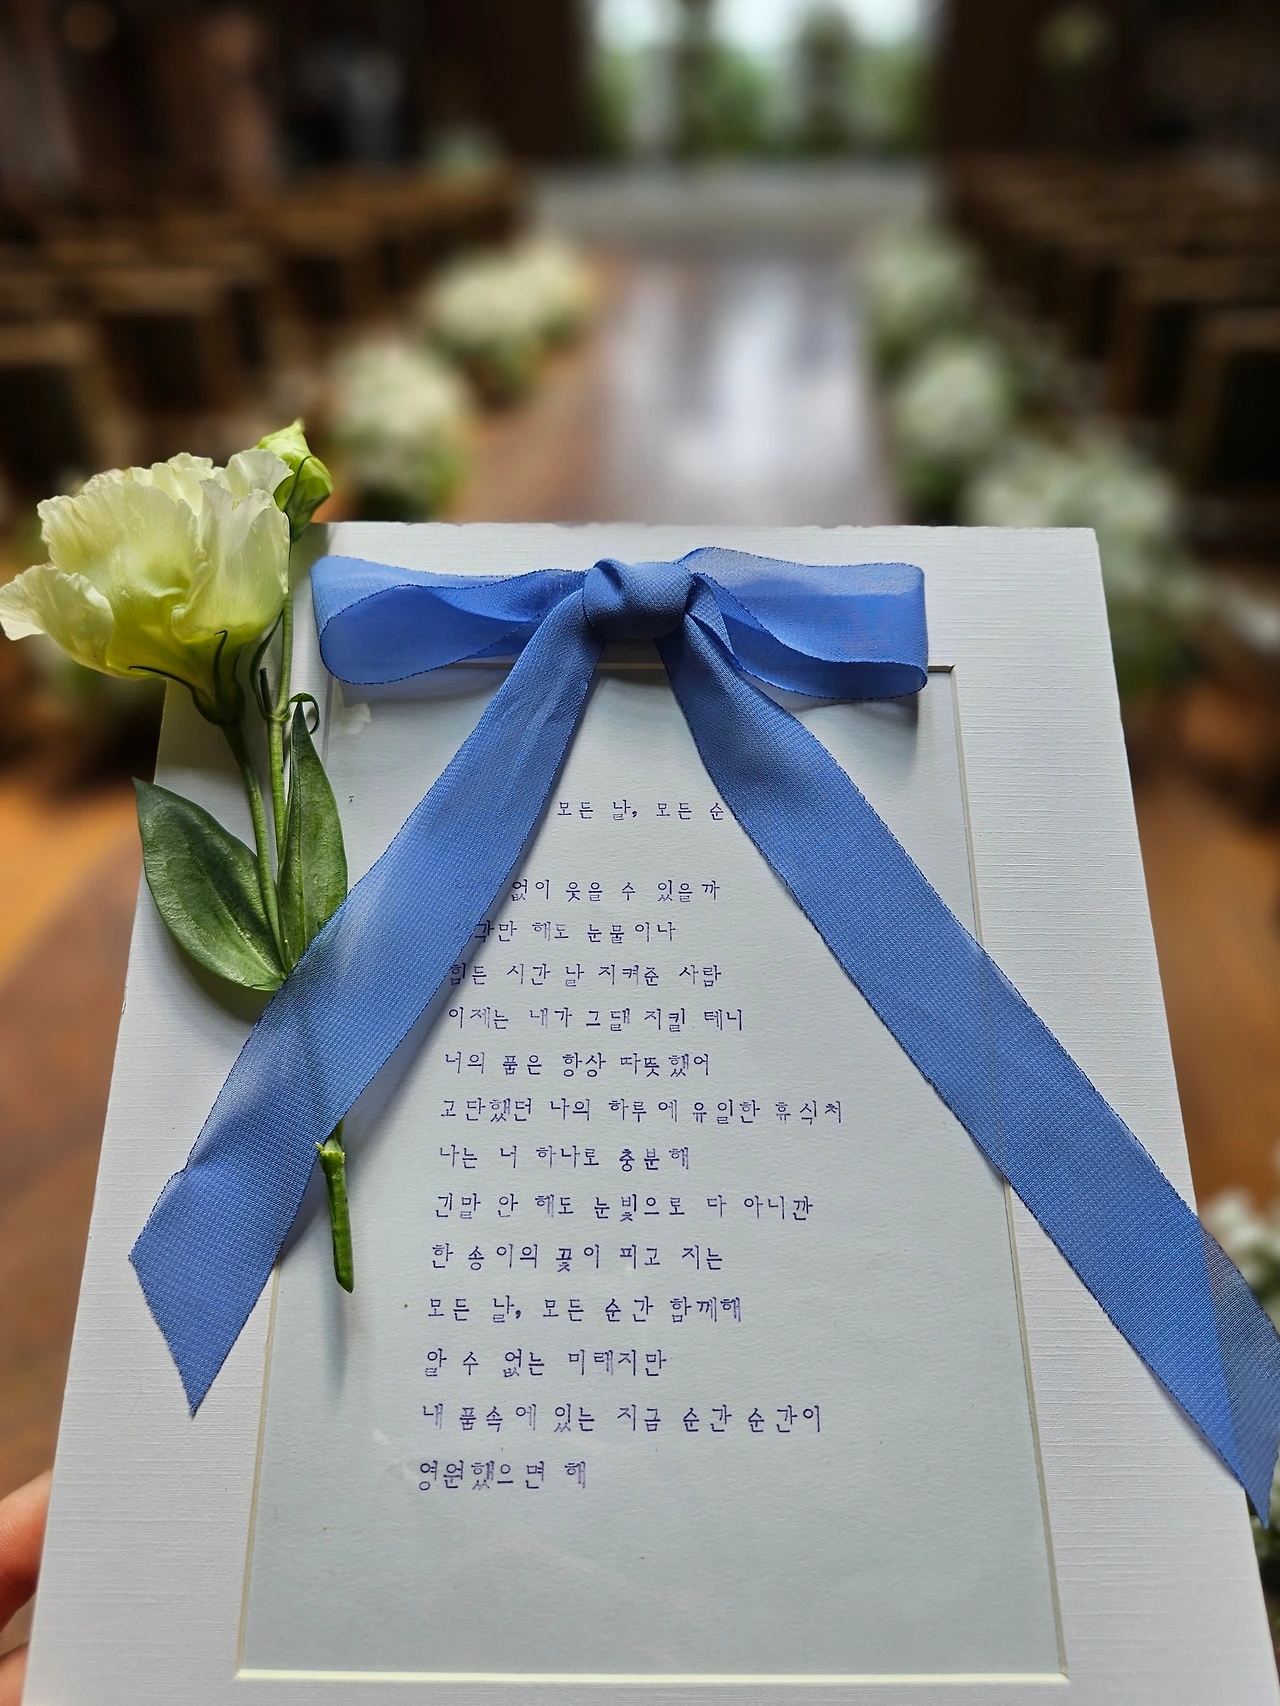 모든 날, 모든 순
없이 웃을 수 있을까
해도 눈물이나
힘든 시간 날 지켜준 사람
이제는 내가 그댈 지킬 테니
너의 품은 항상 따뜻했어
고단했던 나의 하루에 유일한 휴식처
나는 너 하나로 충분해
긴말 안 해도 눈빛으로 다 아니깐
한 송이의 꽃이 피고 지는
모든 날, 모든 순간 함께해
알 수 없는 미래지만
내 품속에 있는 지금 순간 순간이
영원했으면 해